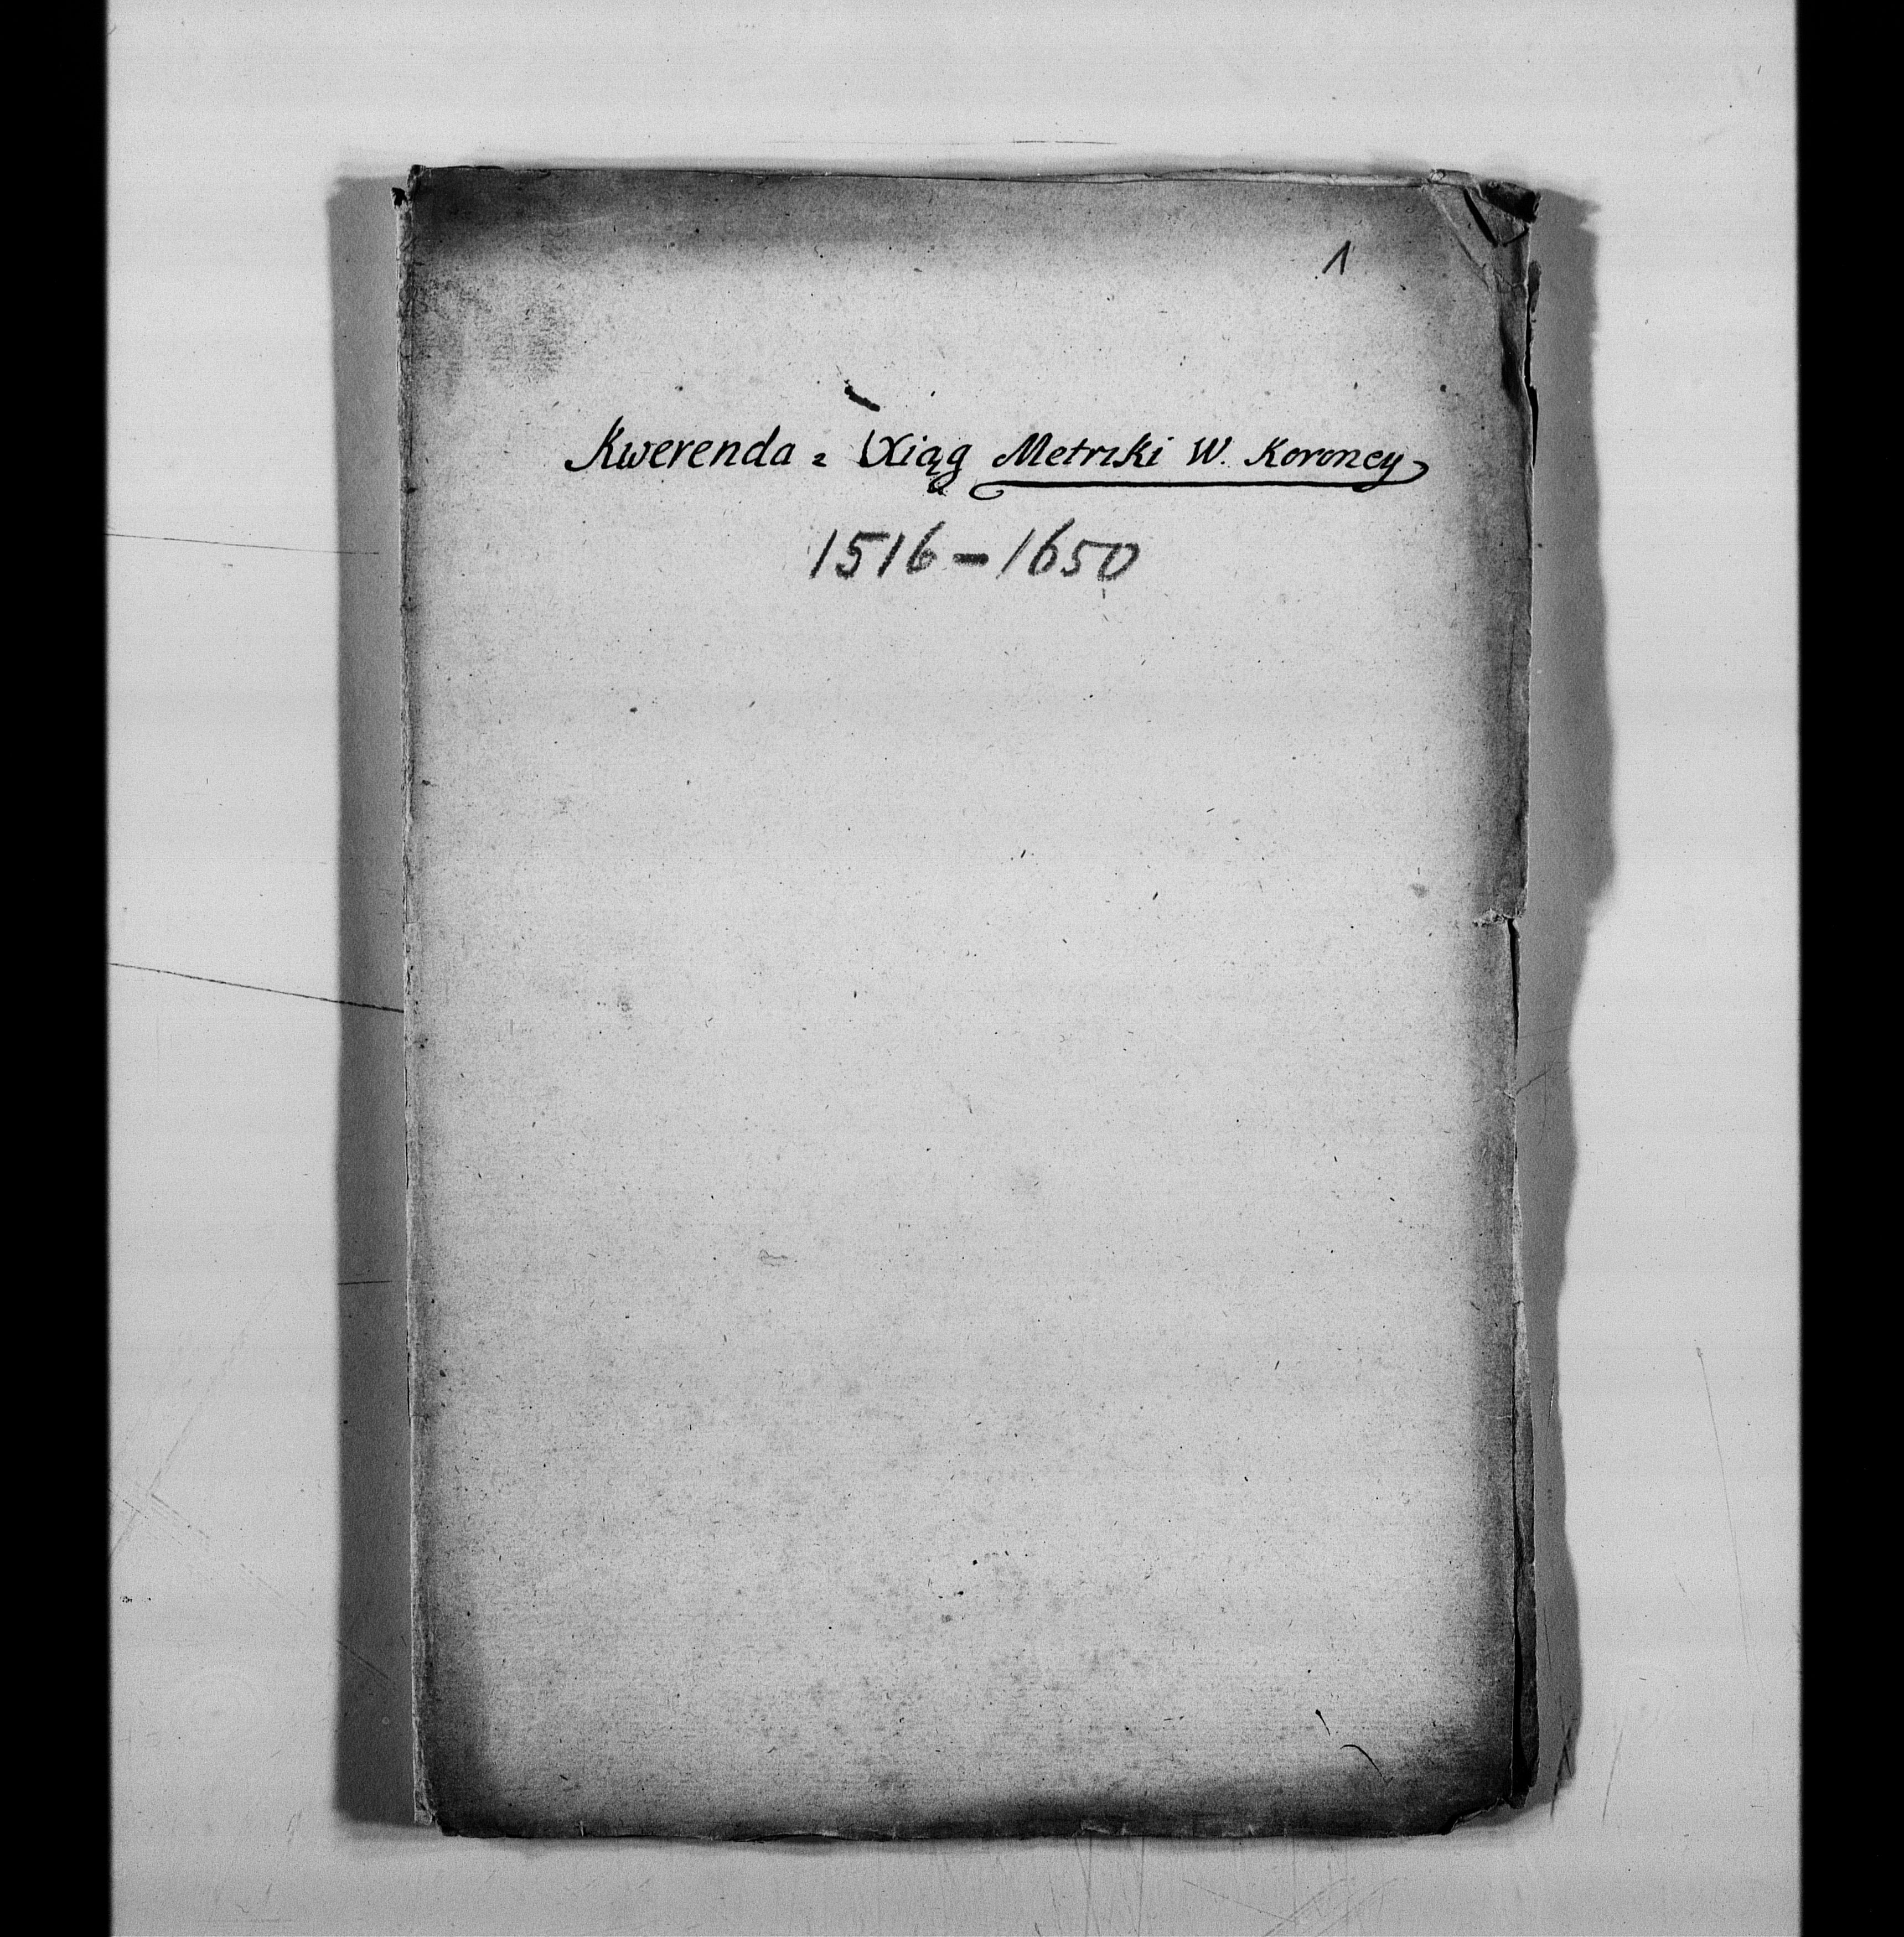 1
Kwerenda z Xiąg Metrzki W. Koroney
1516-1650